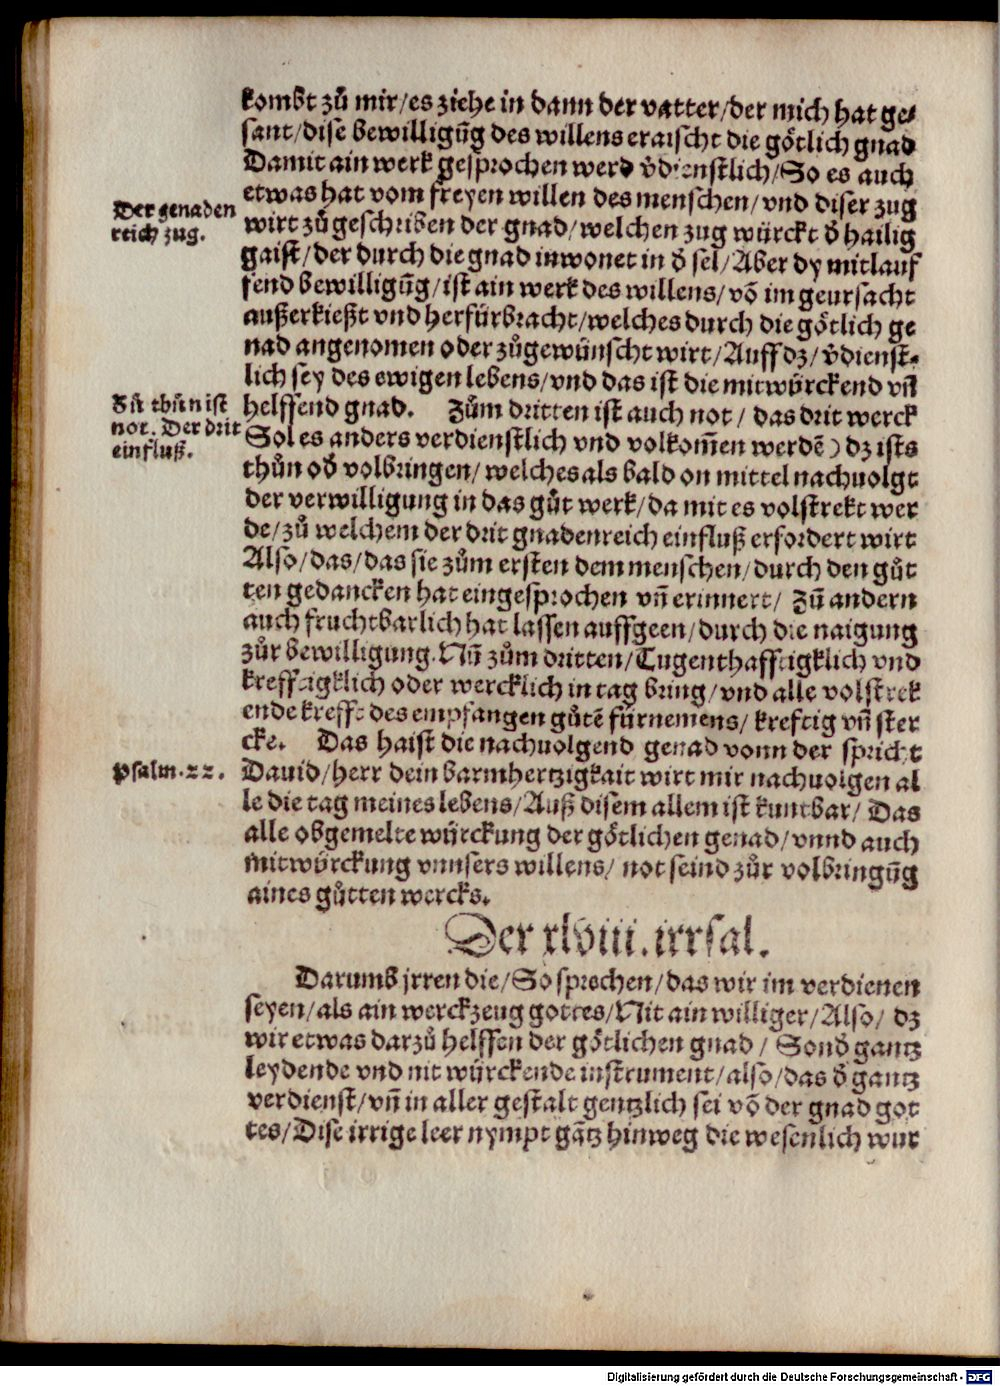 kombt zů mir/es ziehe in dann der vatter/der mich hat ge⸗
sant/dise bewilligũg des willens eraischt die götlich gnad
Damit ain werk gesprochen werd v̊dienstlich/So es auch
etwas hat vom freyen willen des menschen/vnd diser zug
Der genaden
reich zug.
wirt zů geschriben der gnad/welchen zug würckt d̊ hailig
gaist/der durch die gnad inwonet in d̊ sel/Aber dy mitlauf
fend bewilligũg/ist ain werk des willens/võ im geursacht
außerkießt vnd herfürbracht/welches durch die götlich ge
nad angenomen oder zůgewünscht wirt/Auff dz/v̊dienst⸗
lich sey des ewigen lebens/vnd das ist die mitwörckend vñ
Zů thůn ist
not. Der drit
einfluß.
helffend gnad. Zům dritten ist auch not/ das drit werck
Sol es anders verdienstlich vnd volkom̃en werdẽ) dz ists
thůn od̊ volbringen/welches als bald on mittel nachuolgt
der verwilligung in das gůt werk/da mit es volstrekt wer
de/zů welchem der drit gnadenreich einfluß erfordert wirt
Also/das/das sie zům ersten dem menschen/durch den gůt
ten gedancken hat eingesprochen vñ erinnert/ Zũ andern
auch fruchtbarlich hat lassen auffgeen/durch die naigung
zůr bewilligung. Nũ zům dritten/Tugenthafftigklich vnd
krefftigklich oder wercklich in tag bring/vnd alle volstrek
ende krefft des empfangen gůtẽ fürnemens/ kreftig vñ ster
cke. Das haist die nachuolgend genad vonn der spricht
Psalm.22.
Dauid/herr dein barmhertzigkait wirt mir nachuolgen al
le die tag meines lebens/Auß disem allem ist kuntbar/ Das
alle obgemelte würckung der götlichen genad/vnnd auch
mitwörckung vnnsers willens/ not seind zůr volbringũg
aines gůtten wercks.
Der xlviii. irrsal.
Darumb jrren die/So sprechen/das wir im verdienen
seyen/als ain werckzeug gottes/Nit ain williger/Also/ dz
wir etwas darzů helffen der götlichen gnad/ Sond̊ gantz
leydende vnd nit würckende instrument/also/das d̊ gantz
verdienst/vñ in aller gestalt gentzlich sei võ der gnad got
tes/Dise irrige leer nympt gãtz hinweg die wesenlich wur
Digitalisierung gefördert durch die Deutsche Forschungsgemeinschaft - DFG